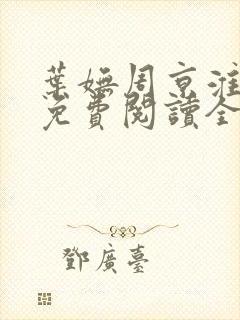 葉嫵周京淮
免費閱讀全
鄧廣臺